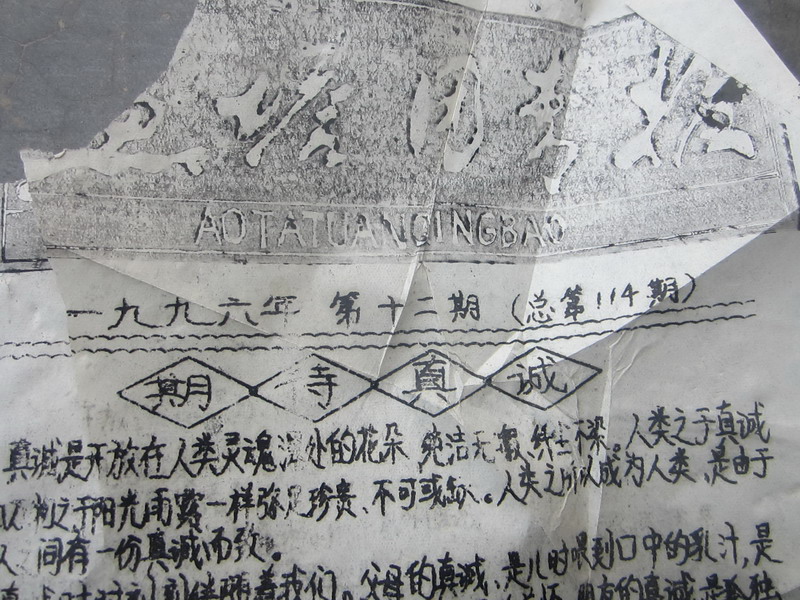 塔团青报
AOTATUANQINGBAO
一九九六年 第十二期 (总第114期)
期 寺 真 诚
真诚是开放在人类灵魂深处的花朵 纯洁无瑕、纤尘不染。人类之于真诚
物之于阳光雨露一样弥足珍贵、不可或缺。人类之所以成为人类、是由于
人间有一份真诚而致。
时时刻刻伴随着我们。父母的真诚、是儿时喂到口中的乳汁,是
朋友的真诚是孤独